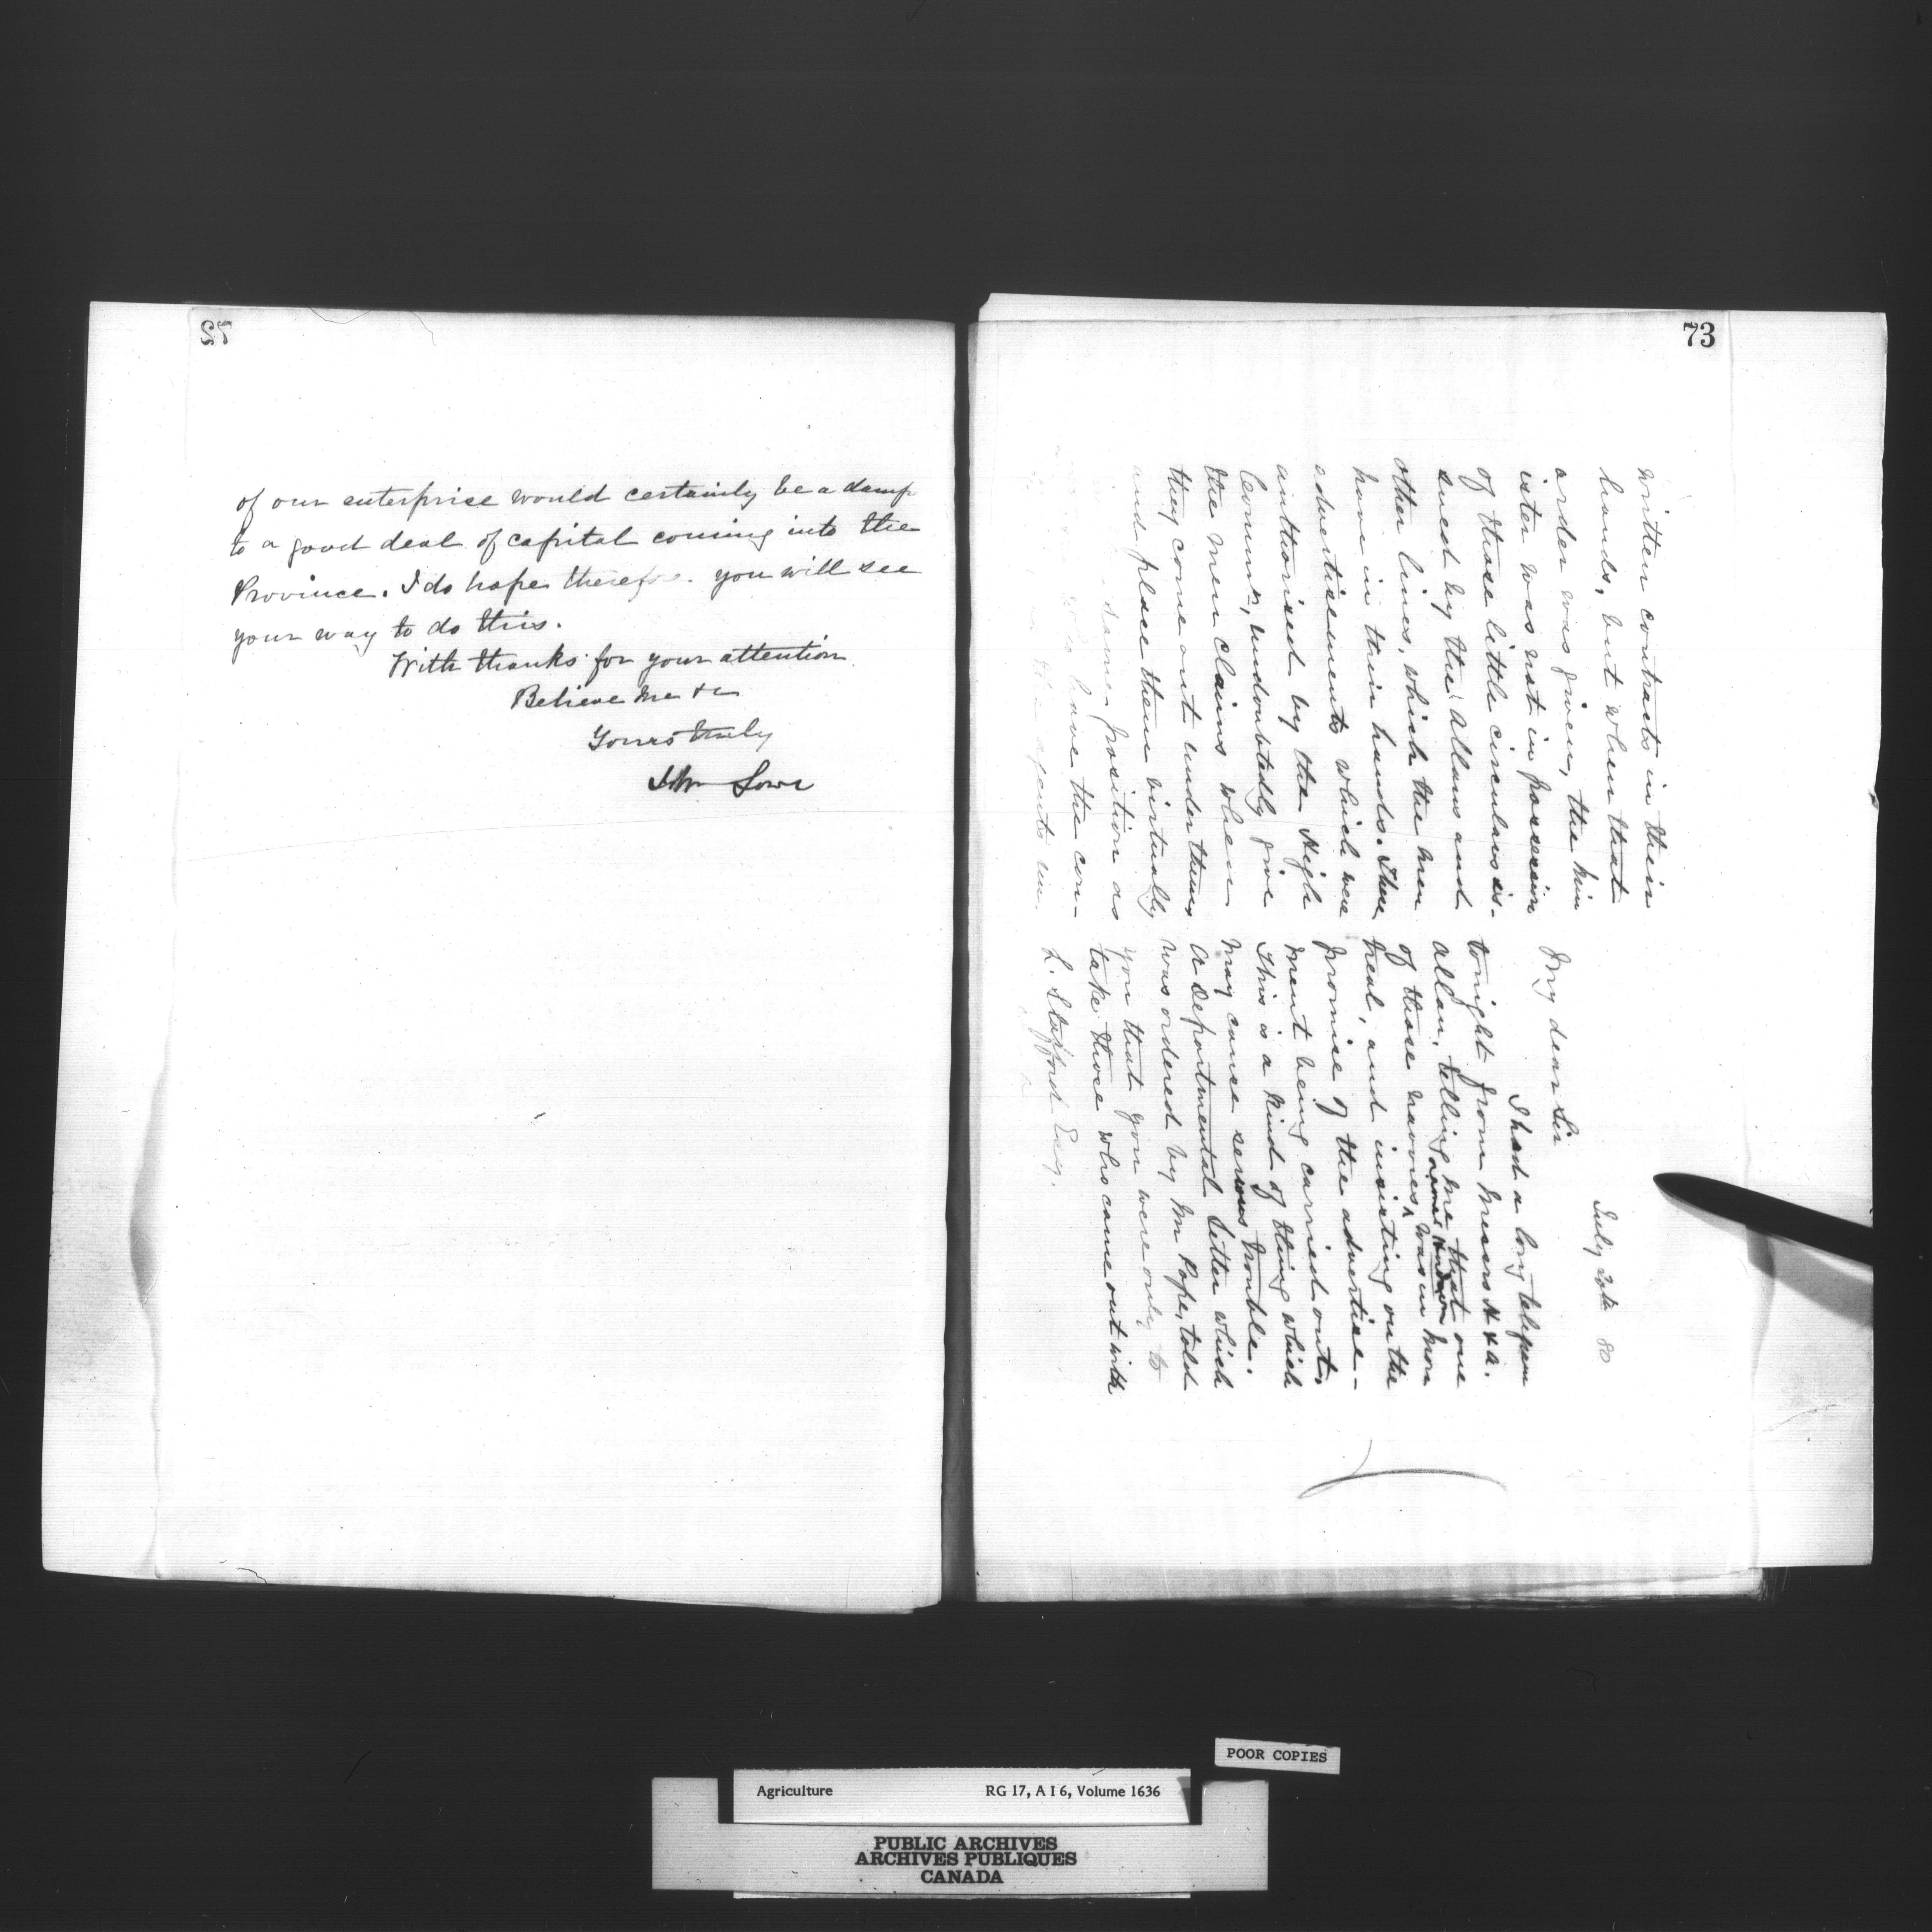 of our enterprise would certainly be a damp
to a good deal of capital coming into the
Province. I do hope therefore you will see
your way to do this.
With thanks for your attention
Believe me &c
Yours truly
John Lowe
73
July 20th 80
My dear Sir
I had a long telegram
tonight from Messrs H & A.
Allan, telling me that one
of these navvies was in Mon
treal, and insisting on the
promise of the advertise-
ment being carried out.
This is a kind of thing which
may cause serious trouble.
A Departmental letter which
was ordered by Mr Pope, told
you that you were only to
take those who came out with
L. Stafford Esq.
written contracts in their
hands, but when that
order was given, the Min
ister was not in possession
of those little circulars is-
sued by the Allans and
other lines, which the men
have in their hands. These
advertisements which were
authorised by the High
Commr, undoubtedly give
the men claims when
they come out under them,
and place them virtually
same position as
who have the con-
agents
Agriculture RG 17, A I 6, Volume 1636
POOR COPIES
PUBLIC ARCHIVES
ARCHIVES PUBLIQUES
CANADA